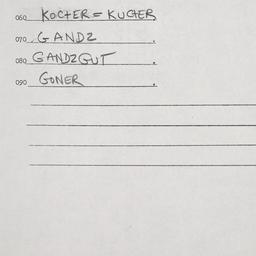 060 KOCHER = KUCHER
070 GANDZ .
080 GANDZGUT .
090 GONER .